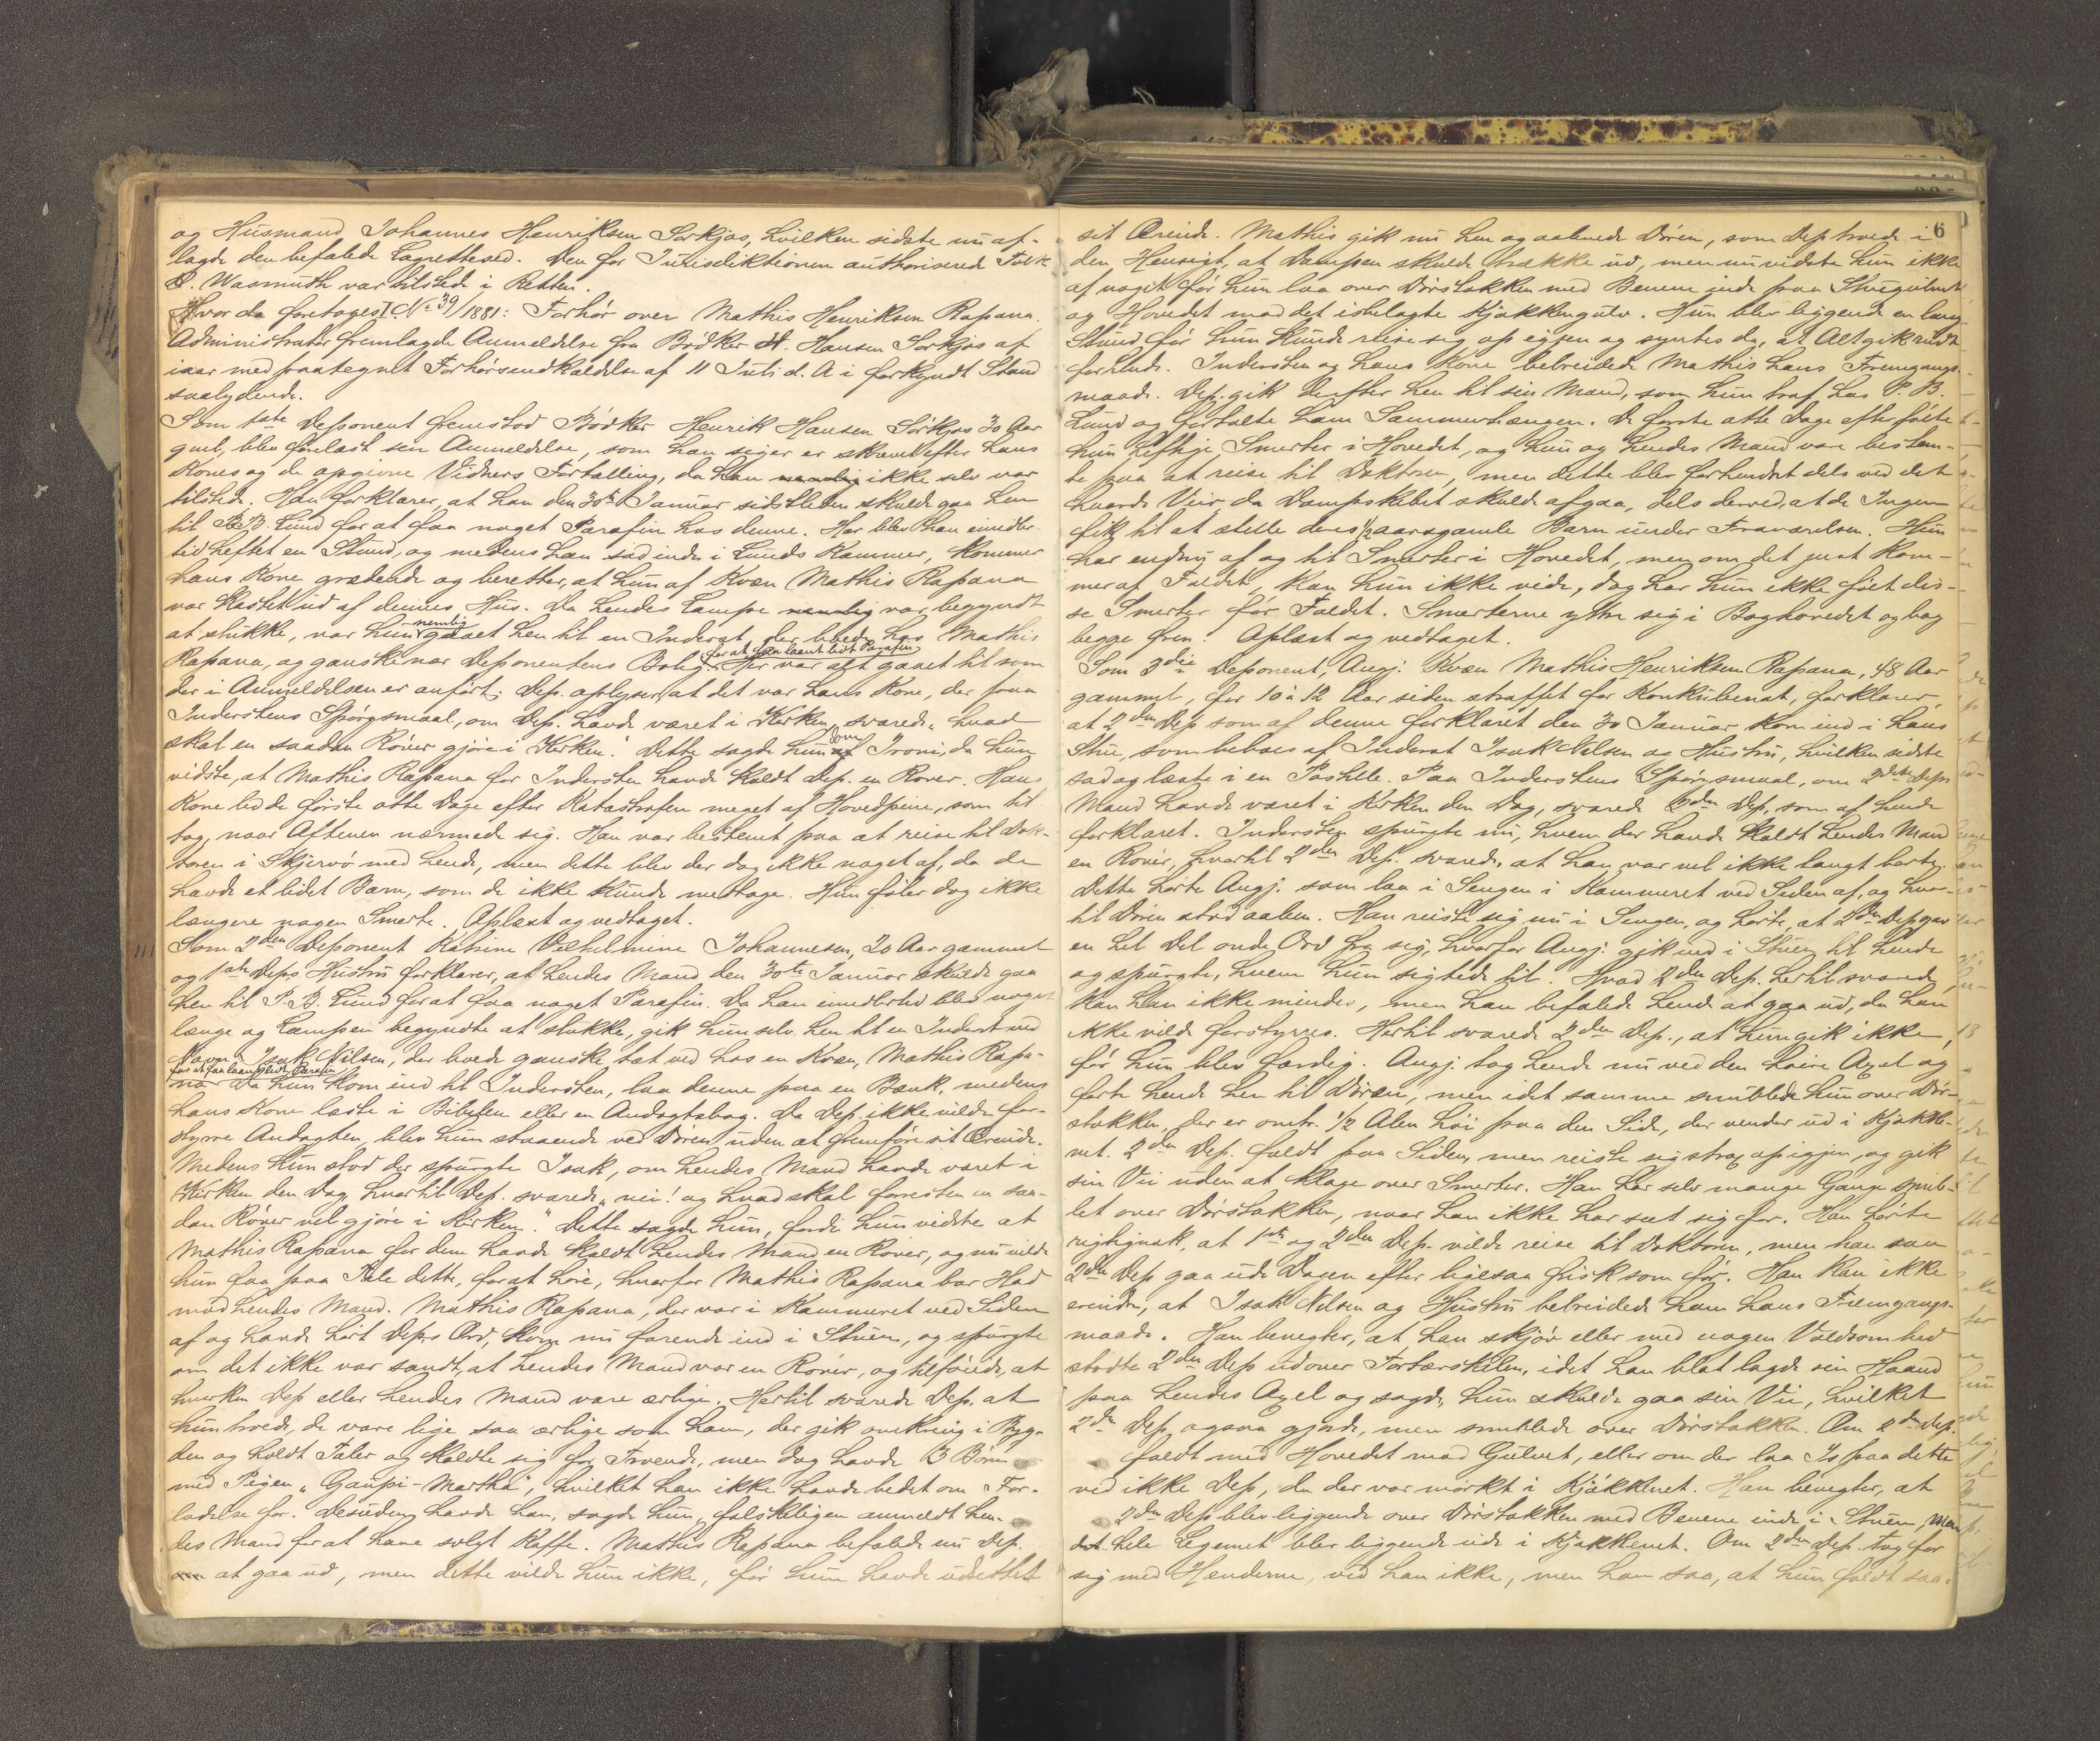 og Husmand Johannes Henriksen Sørkjos, hvilken sidste nu af-
lagde den befalede Lagretteed. Den for Jurisdiktionen authoriserede Tolk
P. Wasmuth var tilstede i Retten.
Hvor da foretoges I. No 39/1881: Forhør over Mathis Henriksen Rapana.
Administrator fremlagde Anmeldelse fra Bødker H. Hansen Sørkjos af
iaar med paategnet Forhørsindkaldelse af 11 Juli d. A i forkyndt Stand
saalydende.
Som 1ste Deponent fremstod Bødker Henrik Hansen Sørkjos 30 Aar
gml, blev forelæst sin Anmeldelse, som han siger er skrevet efter hans
Kones og de opgivne Vidners Fortælling, da han ikke selv var
tilstede. Han forklarer, at han den 30te Januar sidstleden skulde gaa hen
til P. B. Lund for at faa noget Parafin hos denne. Her blev han imidler-
tid heftet en Stund, og medens han sad inde i Lunds Kammer, kommer
hans Kone grædende og beretter, at hun af Kvæn Mathis Rapana
var kastet ud af dennes Hus. Da hendes Lampe var begyndt
at slukke, var hun nemlig gaaet hen til en Inderst, der boede hos Mathis
Rapana, og ganske nær Deponentens Bolig for at faa laant lidt Parafin. Her var alt gaaet til som
der i Anmeldelsen er anført. Dep. oplyser, at det var hans Kone, der paa
Inderstens Spørgsmaal, om Dep. havde været i Kirken, svarede "hvad
skal en saadan Røver gjøre i Kirken." Dette sagde hun som Ironi, da hun
vidste, at Mathis Rapana for Indersten havde kaldt Dep. en Røver. Hans
Kone led de første otte Dage efter Katastrofen meget af Hovedpine, som til-
tog, naar Aftenen nærmede sig. Han var bestemt paa at reise til Dok-
toren i Skjervø med hende, men dette blev der dog ikke noget af, da de
havde et lidet Barn, som de ikke kunde medtage. Hun føler dog ikke
længere nogen Smerte. Oplæst og vedtaget.
Som 2den Deponent Katrine Vilhelmine Johannesen, 20 Aar gammel
og 1ste Deps Hustru forklarer, at hendes Mand den 30te Januar skulde gaa
hen til P. B. Lund for at faa noget Parafin. Da han imidlertid blev noget
længe og Lampen begyndte at slukke, gik hun selv hen til en Inderst ved
Navn Isak Nilsen, der boede ganske tæt ved hos en Kvæn, Mathis Rapa-
na for at faa laant lidt Parafin. Da hun kom ind til Indersten, laa denne paa en Bænk, medens
hans Kone læste i Bibelen eller en Andagtsbog. Da Dep. ikke vilde for-
styrre Andagten, blev hun staaende ved Døren uden at fremføre sit Ærinde.
Medens hun stod der spurgte Isak, om hendes Mand havde været i
Kirken den Dag, hvortil Dep. svarede "nei! og hvad skal forresten en saa-
dan Røver vel gjøre i Kirken." Dette sagde hun, fordi hun vidste at
Mathis Rapana for dem havde kaldt hendes Mand en Røver, og nu vilde
hun faa paa Tale dette, for at høre, hvorfor Mathis Rapana bar Had
mod hendes Mand. Mathis Rapana, der var i Kammeret ved Siden
af og havde hørt Deps Ord, kom nu farende ind i Stuen, og spurgte
om det ikke var sandt, at hendes Mand var en Røver, og tilføiede, at
hverken Dep eller hendes Mand vare ærlige. Hertil svarede Dep. at
hun troede, de vare lige saa ærlige som han, der gik omkring i Byg-
den og holdt Taler og kaldte sig for Troende, men dog havde 3 Børn
med Pigen "Gaupi-Martha", hvilket han ikke havde bedet om For-
ladelse for. Desuden havde han, sagde hun, falskeligen anmeldt hen-
des Mand for at have solgt Kaffe. Mathis Rapana befalede nu Dep.
at gaa ud, men dette vilde hun ikke, før hun havde udrettet
6
sit Ærinde. Mathis gik nu hen og aabnede Døren, som Dep troede i
den Hensigt, at Dampen skulde trække ud, men nu vidste hun ikke
af noget før hun laa over Dørstokken med Benene inde paa Stuegulvet
og Hovedet mod det isbelagte Kjøkkengulv. Hun blev liggende en lang
Stund før hun kunde reise sig op igjen og syntes da, at Alt gik rundt
for hende. Indersten og hans Kone bebreidede Mathis hans Fremgangs-
maade. Dep. gik derefter hen til sin Mand, som hun traf hos P. B.
Lund og fortalte ham Sammenhængen. De første otte Dage efter følte
hun heftige Smerter i Hovedet, og hun og hendes Mand vare bestem-
te paa at reise til Doktoren, men dette blev forhindret dels ved det
haarde Veir, da Dampskibet skulde afgaa, dels derved, at de Ingen
fik til at stelle deres 1/2 aarsgamle Barn under Fraværelsen. Hun
har endnu af og til Smerter i Hovedet, men om det just kom-
mer af Faldet, kan hun ikke vide, dog har hun ikke følt dis-
se Smerter før Faldet. Smerterne yttre sig i Baghovedet og bag
begge Øren. Oplæst og vedtaget.
Som 3die Deponent, Angj. Kvæn Mathis Henriksen Rapana, 48 Aar
gammel, for 10 à 12 Aar siden straffet for Konkubinat, forklarer,
at 2den Dep som af denne forklaret den 30 Januar kom ind i hans
Stue, som beboes af Inderst Isak Nilsen og Hustru, hvilken sidste
sad og læste i en Postille. Paa Inderstens Spørgsmaal, om 2den Deps
Mand havde været i Kirken den Dag, svarede 2den Dep. som af hende
forklaret. Indersten spurgte nu, hvem der havde kaldt hendes Mand
en Røver, hvortil 2den Dep. svarede, at han var vel ikke langt borte.
Dette hørte Angj. som laa i Sengen i Kammeret ved Siden af, og hvor-
til Døren stod aaben. Han reiste sig nu i Sengen, og hørte, at 2den Dep gav
en hel Del onde Ord fra sig, hvorfor Angj. gik ind i Stuen til hende
og spurgte, hvem hun sigtede til. Hvad 2den Dep. hertil svarede,
kan han ikke mindes, men han befalede hende at gaa ud, da han
ikke vilde forstyrres. Hertil svarede 2den Dep., at hun gik ikke,
før hun blev færdig. Angj. tog hende nu ved den høire Axel og
førte hende hen til Døren, men idet samme snublede hun over Dør-
stokken, der er omtr. 1/2 Alen høi paa den Side, der vender ud i Kjøkke-
net. 2den Dep. faldt paa Siden, men reiste sig strax op igjen, og gik
sin Vei uden at klage over Smerter. Han har selv mange Gange snub-
let over Dørstokken, naar han ikke har seet sig for. Han hørte
rigtignok, at 1ste og 2den Dep. vilde reise til Doktoren, men han saa
2den Dep gaa ude Dagen efter ligesaa frisk som før. Han kan ikke
erindre, at Isak Nilsen og Hustru bebreidede ham hans Fremgangs-
maade. Han benegter, at han skjøv eller med nogen Voldsomhed
stødte 2den Dep udover Dørtærskelen, idet han blot lagde sin Haand
paa hendes Axel og sagde, hun skulde gaa sin Vei, hvilket
2den Dep. ogsaa gjorde, men snublede over Dørstokken. Om 2den Dep.
faldt med Hovedet mod Gulvet, eller om der laa Is paa dette
ved ikke Dep, da der var mørkt i Kjøkkenet. Han benegter, at
2den Dep blev liggende over Dørstokken med Benene inde i Stuen, men
det hele Legemet blev liggende ude i Kjøkkenet. Om 2den Dep. tog for
sig med Hænderne, ved han ikke, men han saa, at hun faldt saa-